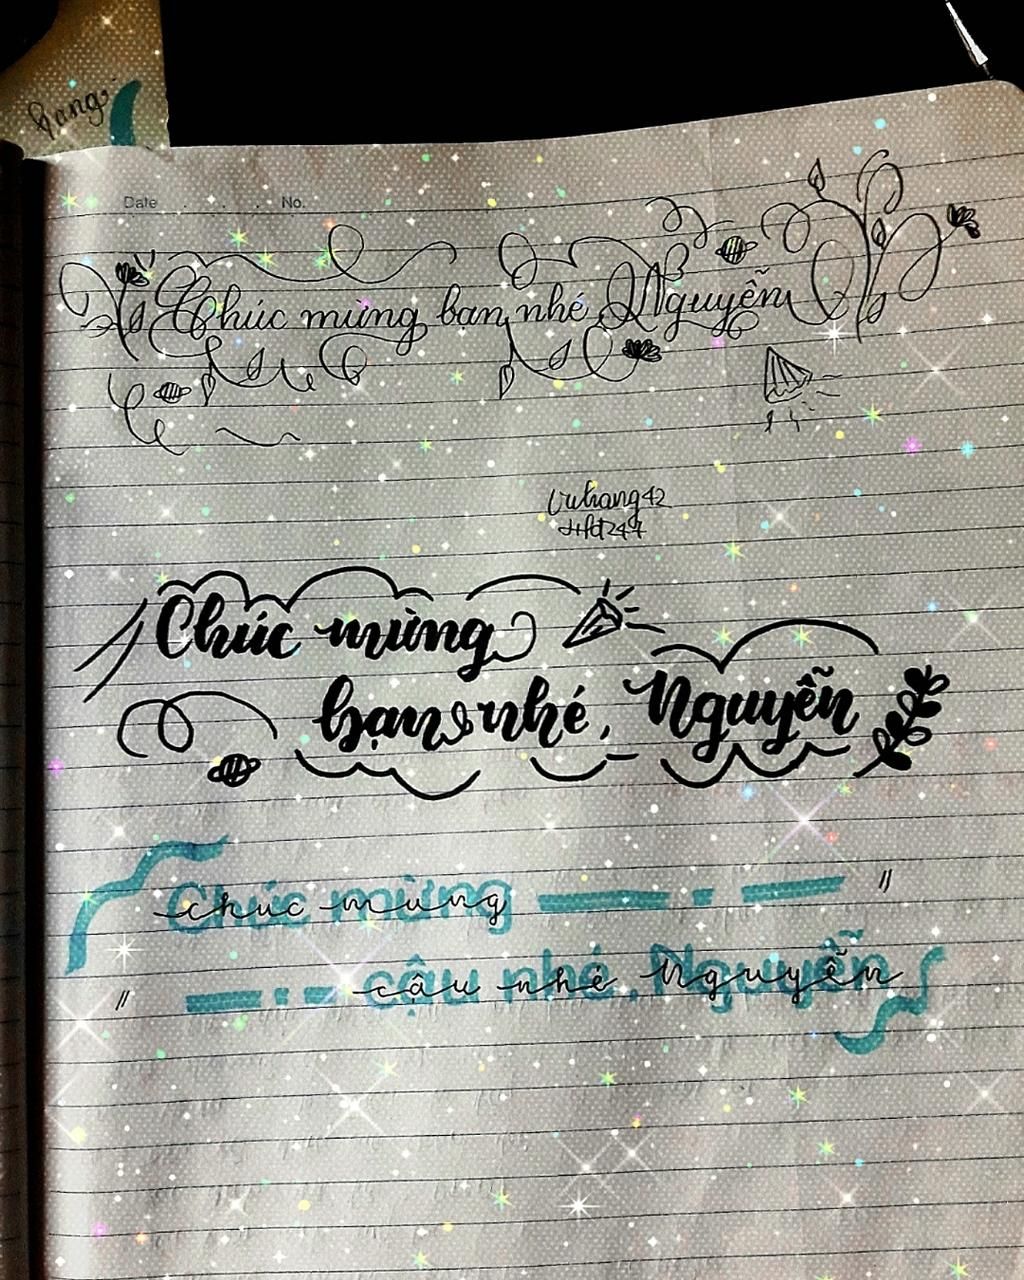 hang
Date . . . No.
Chúc mừng bạn nhé, Nguyễn
Chúc mừng
bạn nhé, Nguyễn
Chúc mừng
cậu nhé, Nguyễn